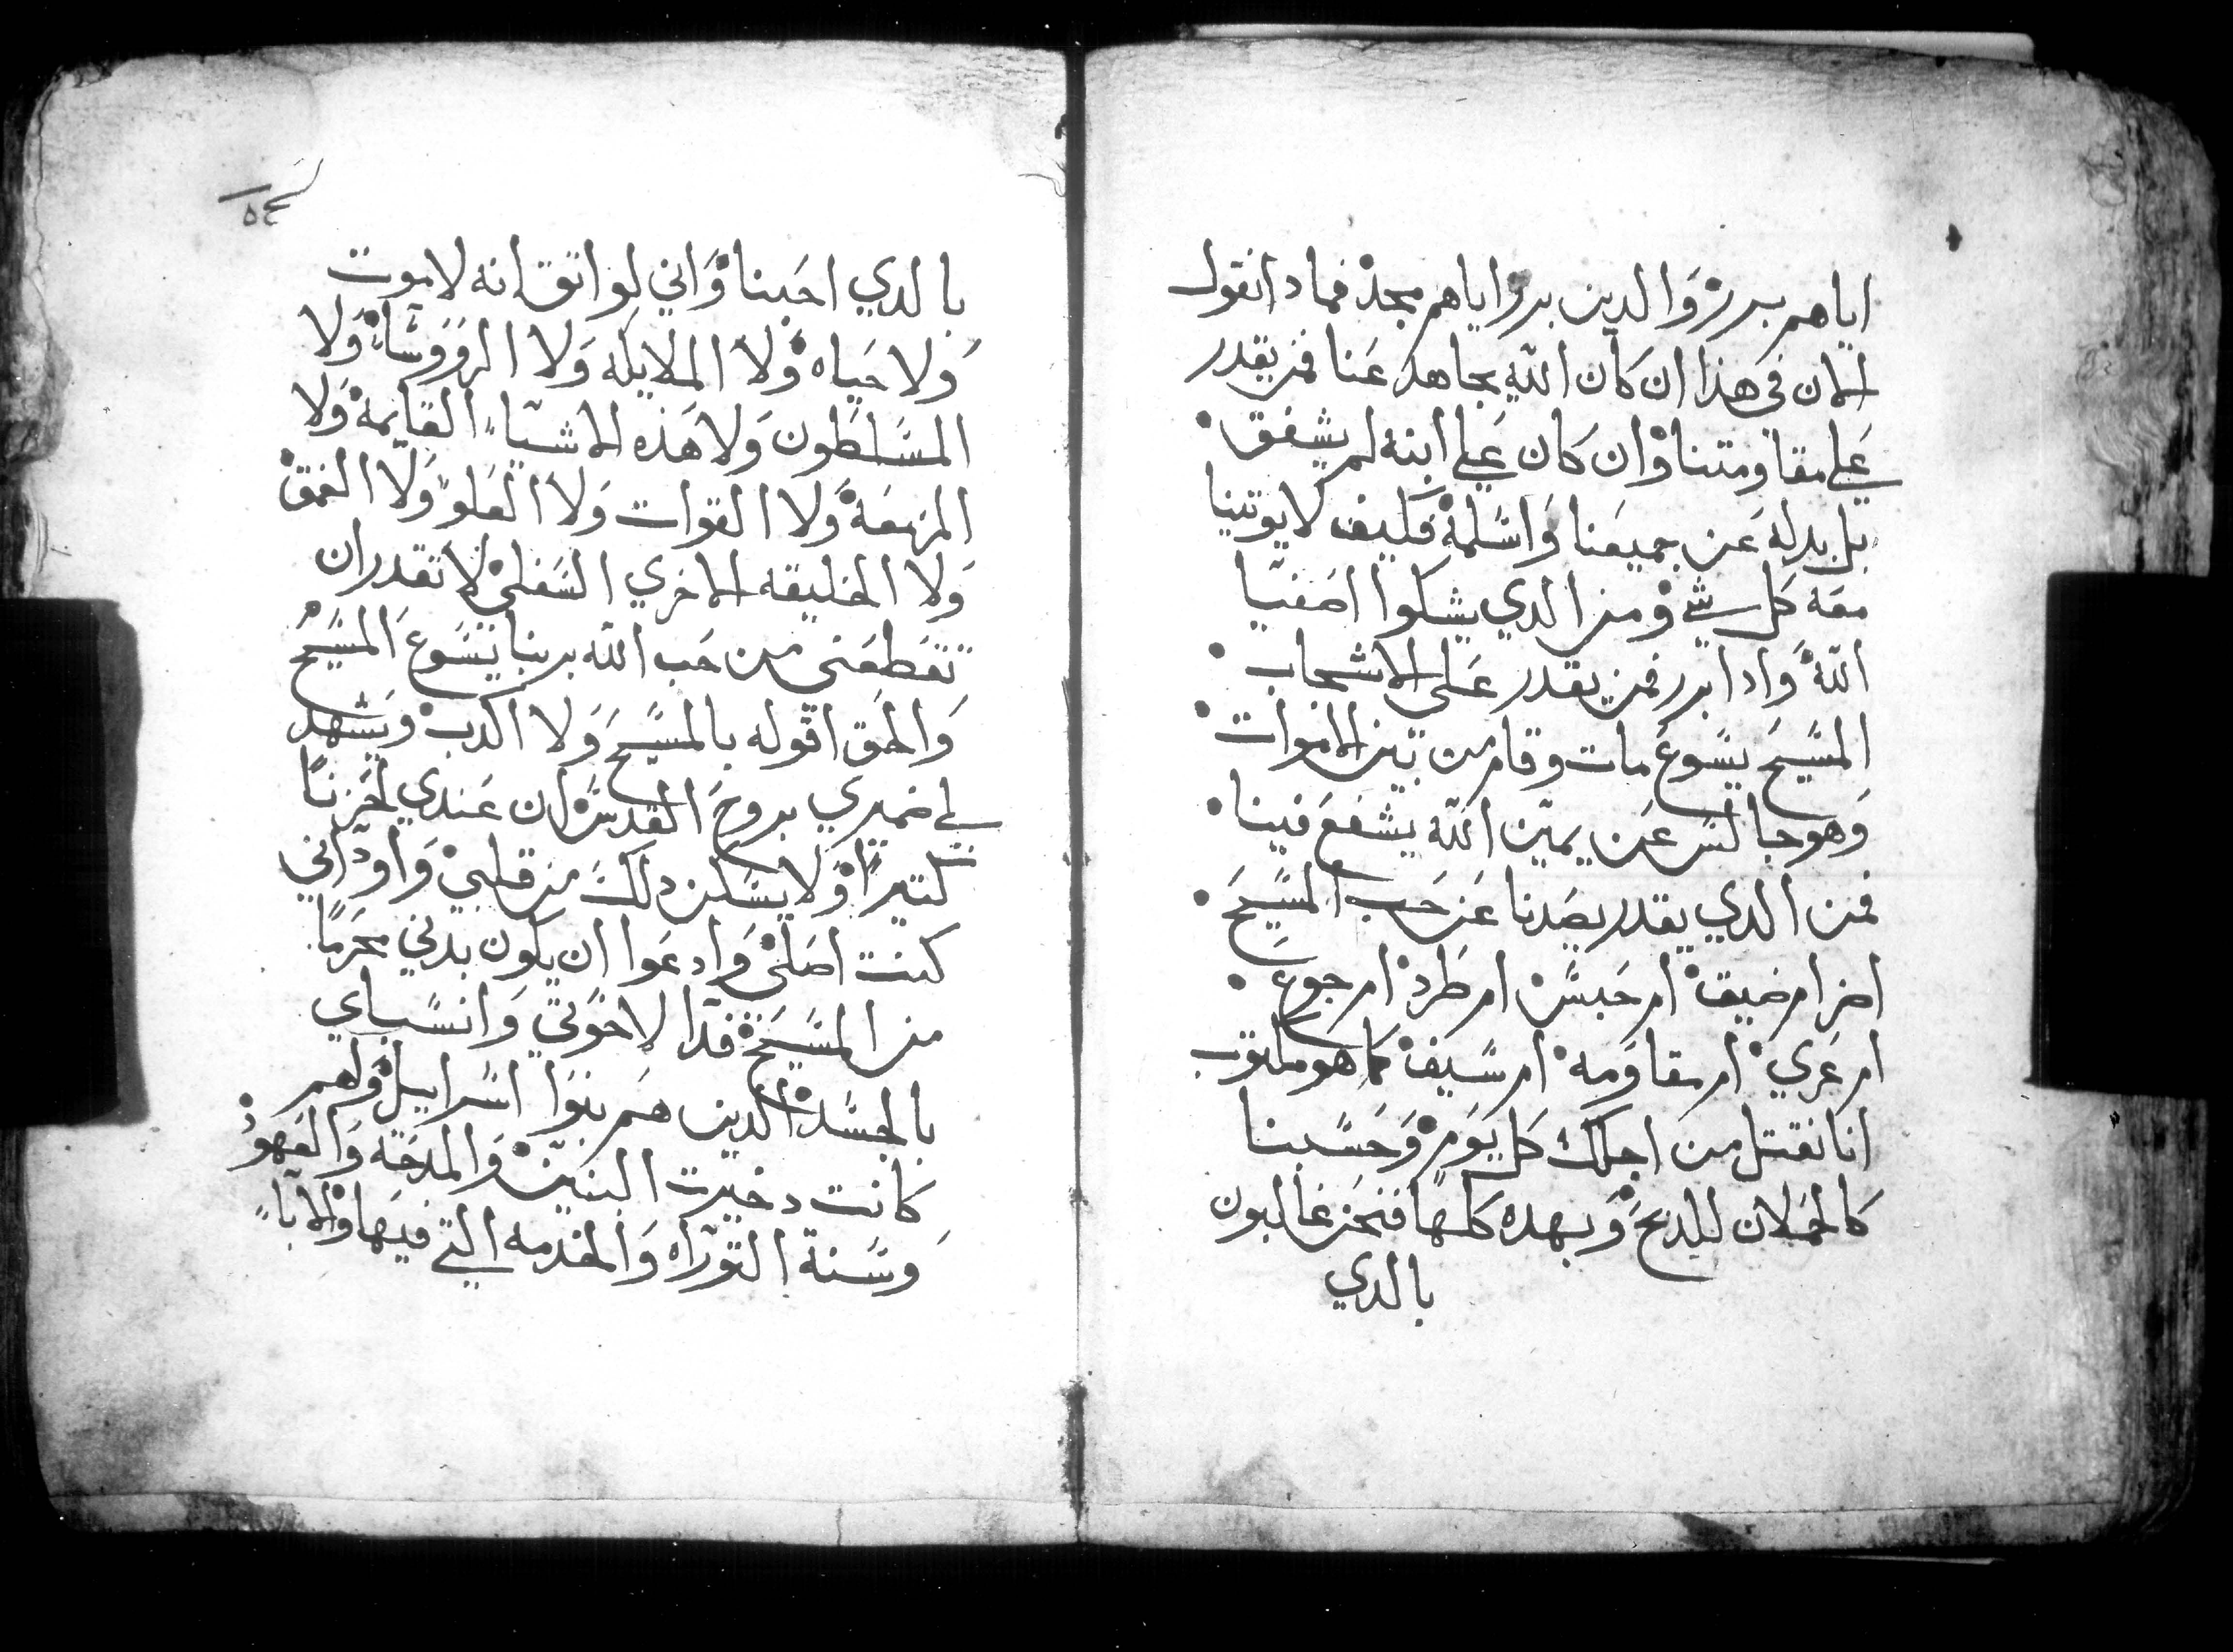 اياهم برر والدين برر اياهم مجد فمادا نقول
الان في هذا ان كان الله يجاهد عنا فمن يقدر
علي مقاومتنا وان كان علي ابنه لم يشفق
بل بدله عن جميعنا واسلمه فكيف لا يوتينا
معه كل شي ومن الدي يشكوا اصفيا
الله وادا برر فمن يقدر علي الاشجاب
المسيح يسوع مات وقام من بين الاموات
وهو جالس عن يمين الله يشفع فينا
فمن الدي يقدر يصدنا عن حب المسيح
اضر ام ضيق ام حبس ام طرد ام جوع
ام عري ام مقاومه ام سيف كما هو مكتوب
انا نقتل من اجلك كل يوم وحسبنا
كالحملان للدبح وبهده كلها فنحن غالبون
بالدي
بالدي احبنا واني لواتق انه لا موت
ولا حياه ولا الملايكه ولا الرووسا ولا
المسلطون ولا هذه الاشيا القايمة ولا
المزمعة ولا القوات ولا العلو ولا العمق
ولا الخليقه الاخري السفلي لا تقدر ان
تقطعني من حب الله بربنا يسوع المسيح
والحق اقوله بالمسيح ولا اكدب ويشهد
لي ضميري بروح القدس ان عندي لحزنا
كتيرا ولا يسكن دلك من قلبي واود اني
كنت اصلي وادعوا ان يكون بدني محرما
من المسيح فدا لاخوتي وانسباي
بالجسد الدين هم بنوا اسراييل ولهم
كانت دخيرت البنين والمدحة والعهود
وسنة التوراه والخدمه التي فيها والابا